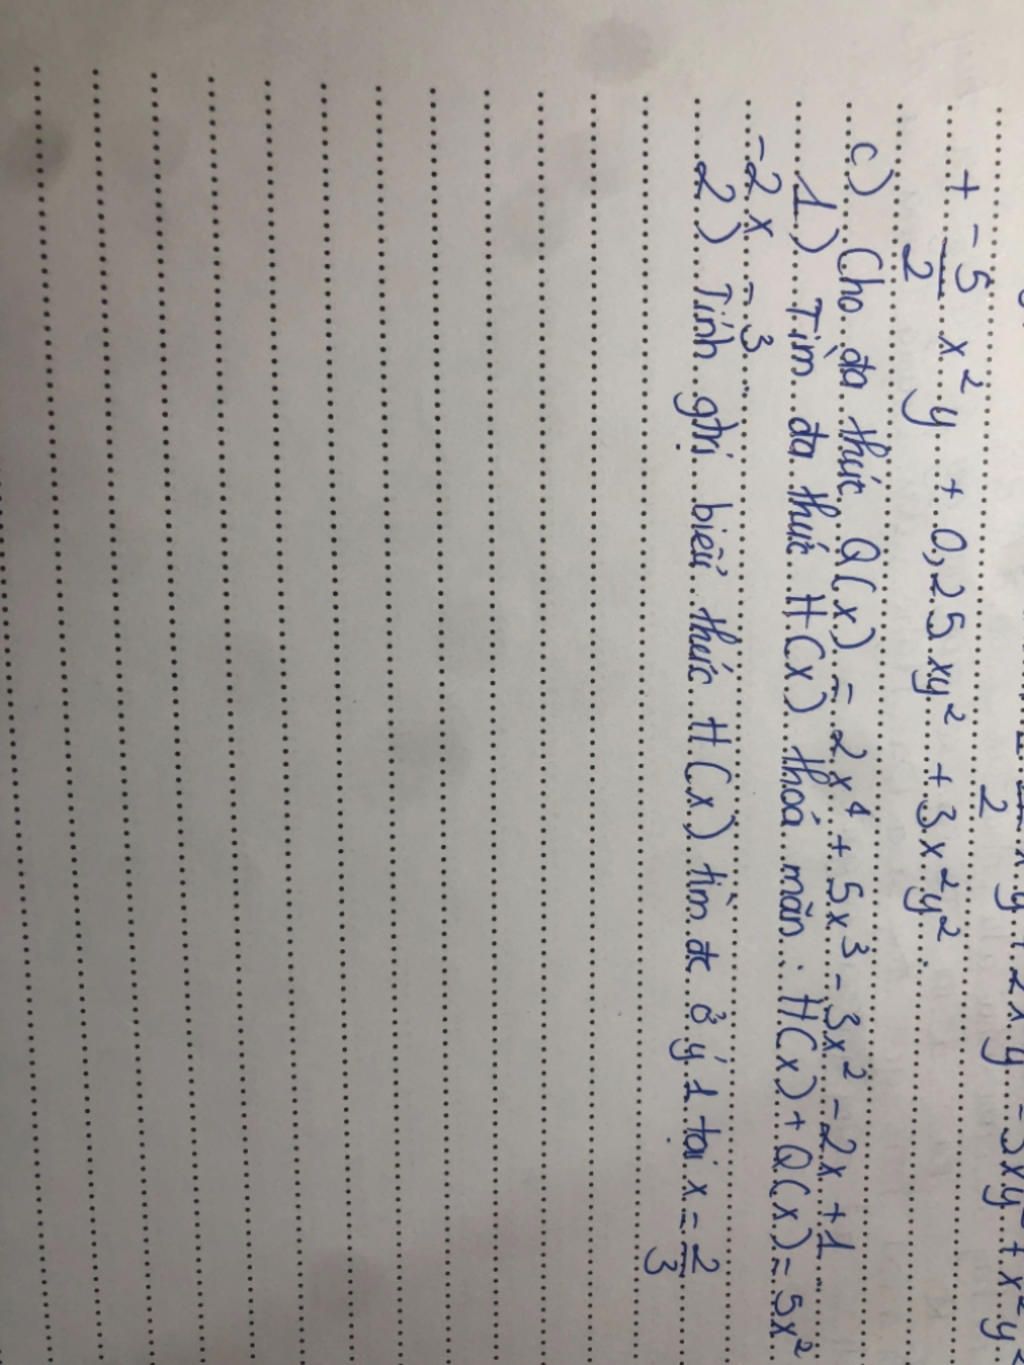 2
x y + 2x y - 3xy² + x²y²
+ -5/2 x²y + 0,25xy² + 3x²y².
c) Cho đa thức Q(x) = 2x⁴ + 5x³ - 3x² - 2x + 1
1) Tìm đa thức H(x) thoả mãn: H(x) + Q(x) = 5x²
-2x - 3.
2) Tính gtrị biểu thức H(x) tìm đc ở ý 1 tại x = 2/3